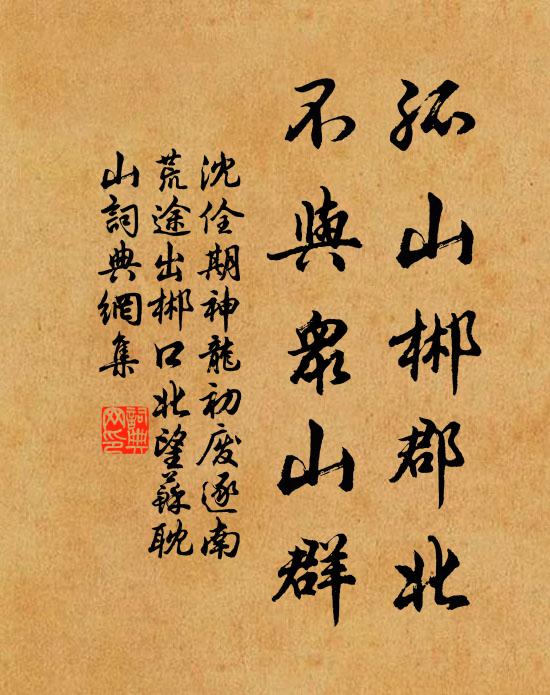 孤山郴郡北
不與眾山群
沈佺期神龍初廢逐南
荒途出郴口北望蘇耽
山詞典網集
詞典
网印